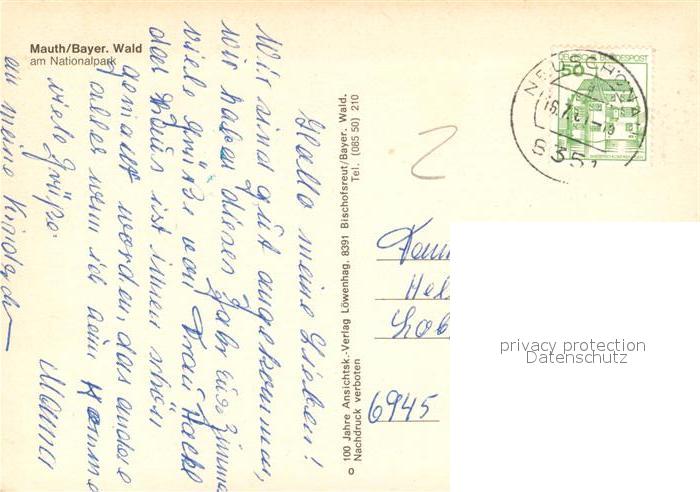 Mauth/Bayer. Wald
am Nationalpark
Hallo meine Lieben!
Wir sind gut angekommen,
wir haben dieses Jahr eine Zimmer
viele Grüße von Frau Hackl
das Haus ist innen schön
gemalt worden, das andere
alles wenn ich heim komme
viele Grüße
Mama
an meine Kinder
100 Jahre Ansichtsk.-Verlag Löwenhag, 8391 Bischofsreut/Bayer. Wald.
Tel. (085 50) 210
Nachdruck verboten
DEUTSCHE BUNDESPOST
50
NEUSCHÖNAU
8351
2
Fam
Hel
Lab
6945
privacy protection
Datenschutz